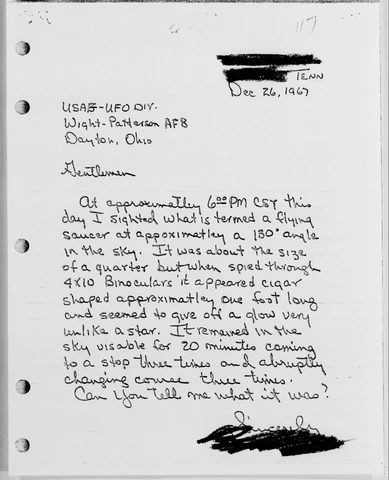 117
TENN
Dec 26, 1967
USAF-UFO DIV.
Wight-Patterson AFB
Dayton, Ohio
Gentlemen
At approximatley 6:00 PM CST this
day I sighted what is termed a flying
saucer at appoximatley a 130° angle
in the sky. It was about the size
of a quarter but when spied through
4X10 Binoculars it appeared cigar
shaped approximatley one foot long
and seemed to give off a glow very
unlike a star. It remained in the
sky visable for 20 minutes coming
to a stop three times and abruptly
changing course three times.
Can You tell me what it was?
Sincerely